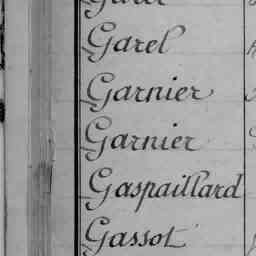 Garel
Garnier
Garnier
Gaspaillard
Gassot